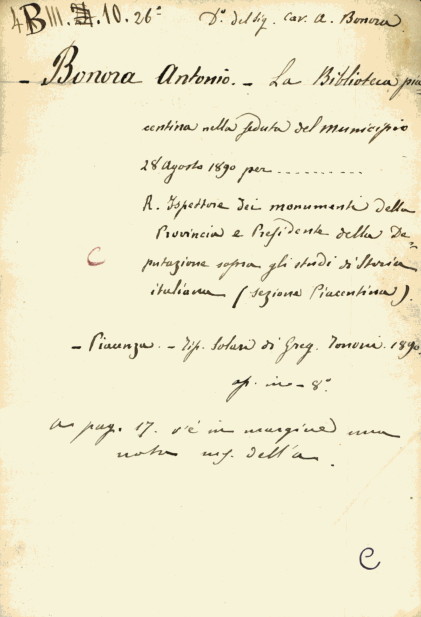 4B III. 10. 26ª D.º del Sig. Cav. A. Bonora.
- Bonora Antonio. - La Biblioteca pia
centina nella seduta del municipio
28 agosto 1890 per ..........
R. Ispettore dei monumenti della
Provincia e Presidente della De=
putazione sopra gli studi di Storia
italiana (sezione Piacentina).
C
- Piacenza. - Tip. Solari di Greg. Tononi. 1890.
op. in - 8º
a pag. 17. v'è in margine una
nota ms. dell'a.
C